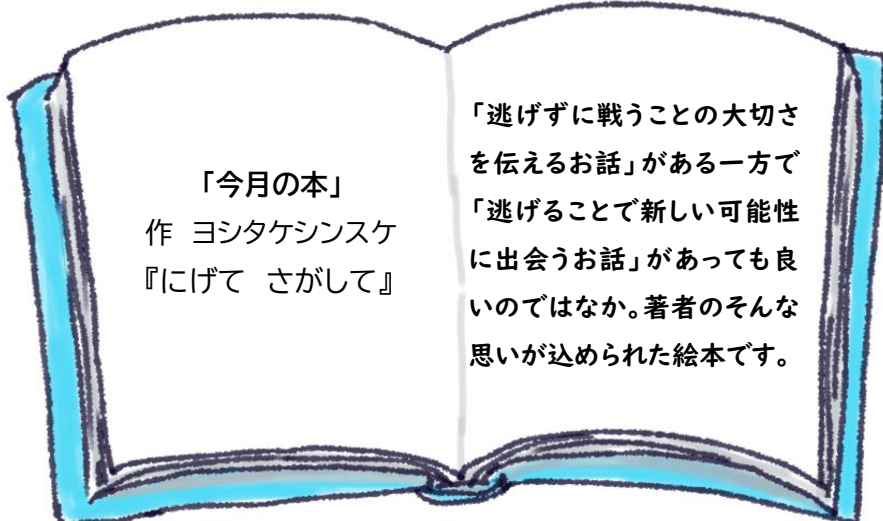 「今月の本」
作 ヨシタケシンスケ
『にげて さがして』
「逃げずに戦うことの大切さ
を伝えるお話」がある一方で
「逃げることで新しい可能性
に出会うお話」があっても良
いのではなか。著者のそんな
思いが込められた絵本です。